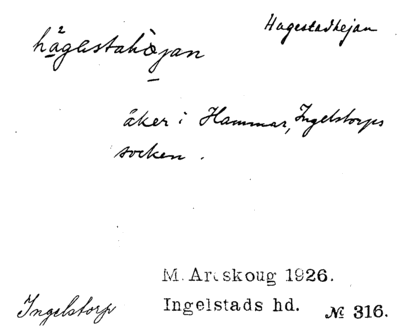 Hagestadhejan
hagestahöjan
åker i Hammar, Ingelstorps
socken.
M. Areskoug 1926.
Ingelstorp
Ingelstads hd.
№ 316.